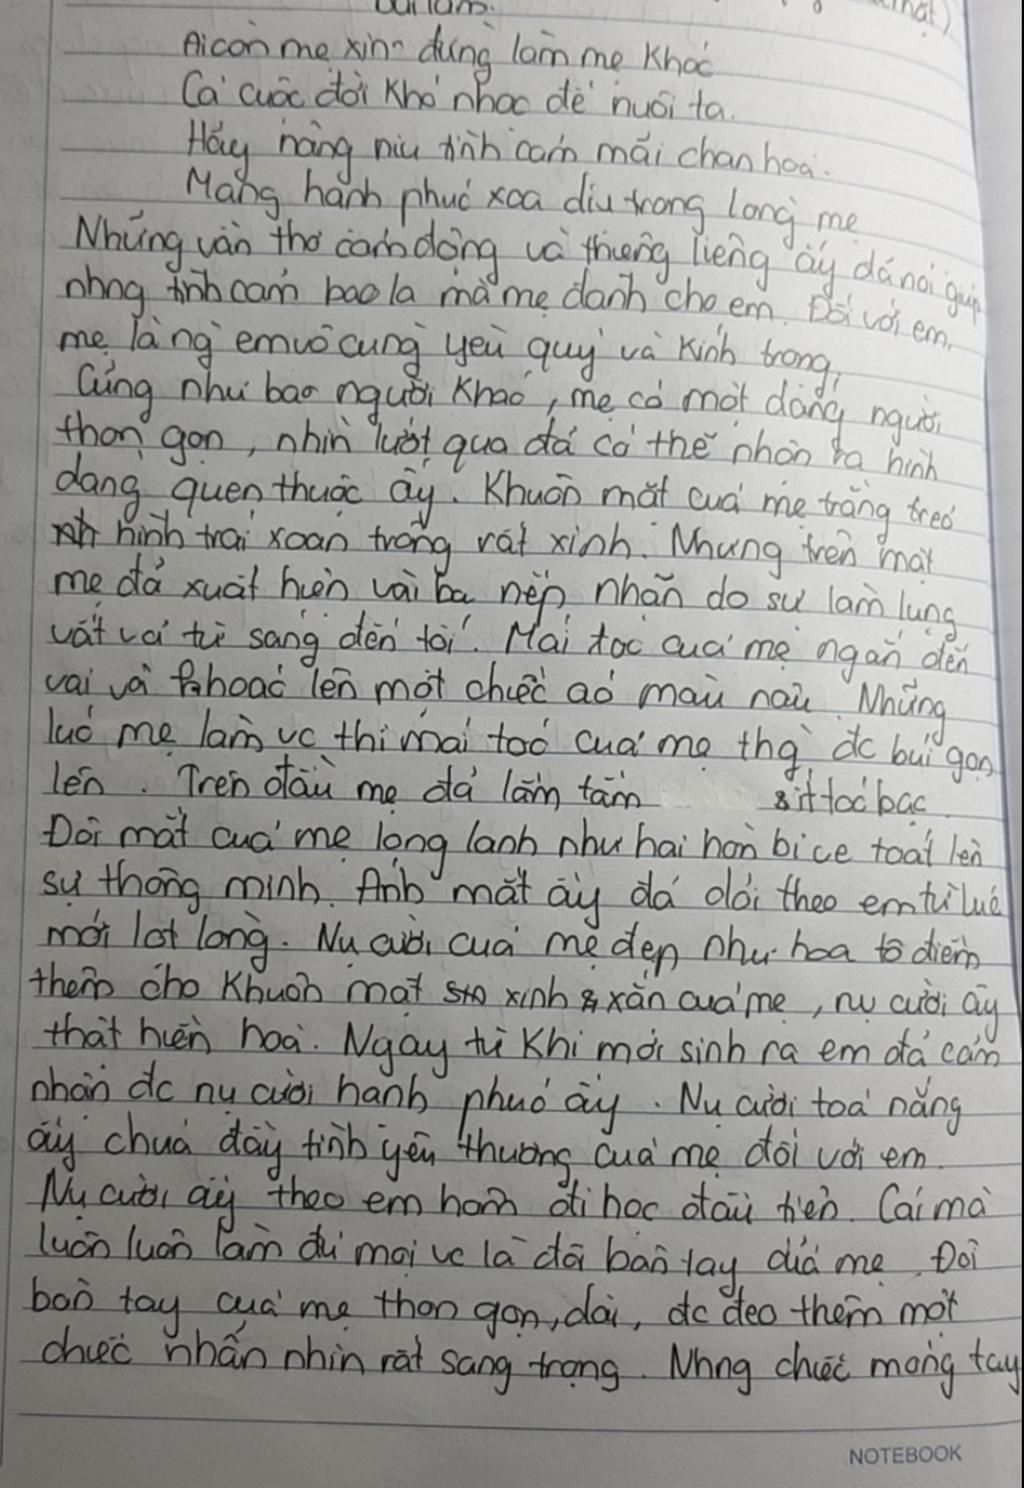 bài làm.
Ai còn mẹ xin đừng làm mẹ khóc
Cả cuộc đời khó nhọc để nuôi ta.
Hãy nâng niu tình cảm mãi chan hoà.
Mang hạnh phúc xoa dịu trong lòng mẹ
Những vần thơ cảm động và thiêng liêng ấy đã nói giúp
nhng tình cảm bao la mà mẹ dành cho em. Đối với em,
mẹ là ng em vô cùng yêu quý và kính trọng.
Cũng như bao người khác, mẹ có một dáng người
thon gọn, nhìn lướt qua đã có thể nhận ra hình
dáng quen thuộc ấy. Khuôn mặt của mẹ trắng trẻo
hình trái xoan trông rất xinh. Nhưng trên mặt
mẹ đã xuất hiện vài ba nếp nhăn do sự làm lụng
vất vả từ sáng đến tối. Mái tóc của mẹ ngắn đến
vai và khoác lên một chiếc áo màu nâu. Những
lúc mẹ làm vc thì mái tóc của mẹ thg đc búi gọn
lên. Trên đầu mẹ đã lấm tấm sít tóc bạc.
Đôi mắt của mẹ long lanh như hai hòn bi ce toát lên
sự thông minh. Ánh mắt ấy đã dõi theo em từ lúc
mới lọt lòng. Nụ cười của mẹ đẹp như hoa tô điểm
thêm cho khuôn mặt xinh xắn của mẹ, nụ cười ấy
thật hiền hoà. Ngay từ khi mới sinh ra em đã cảm
nhận đc nụ cười hạnh phúc ấy. Nụ cười toả nắng
ấy chứa đầy tình yêu thương của mẹ đối với em.
Nụ cười ấy theo em hôm đi học đầu tiên. Cái mà
luôn luôn làm đủ mọi vc là đôi bàn tay của mẹ. Đôi
bàn tay của mẹ thon gọn, dài, đc đeo thêm một
chiếc nhẫn nhìn rất sang trọng. Nhng chiếc móng tay
NOTEBOOK